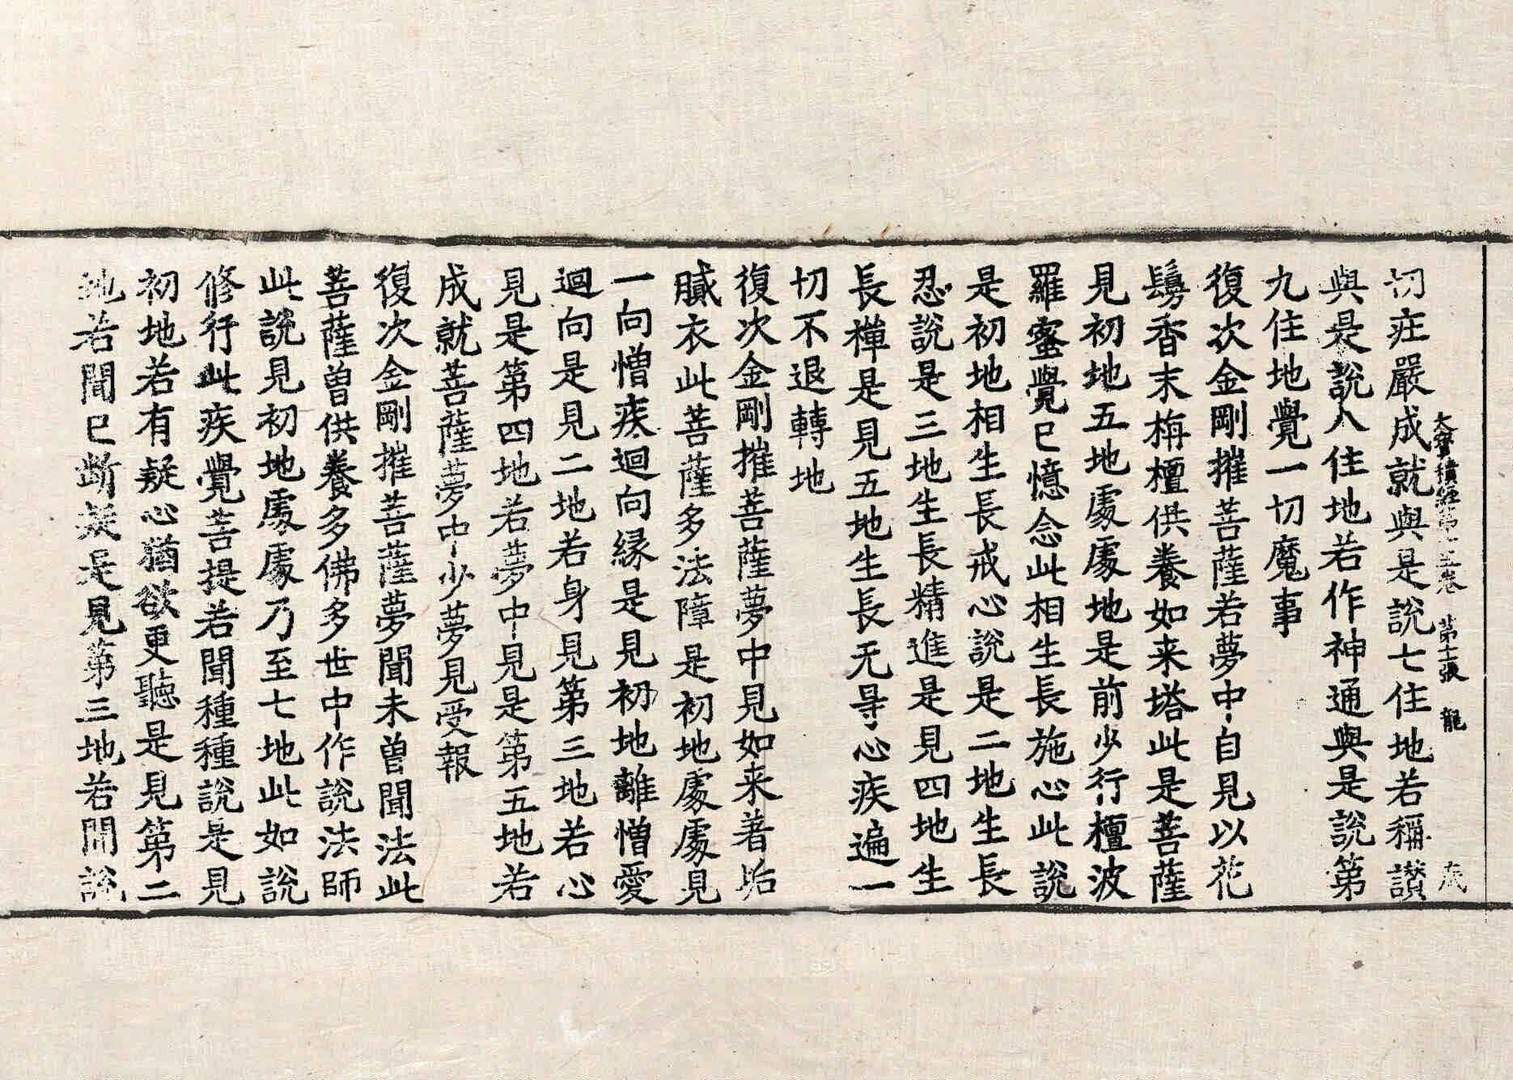 大寶積經第十五卷 第十一張 龍
切疘嚴成就與是說七住地若稱讃
與是說八住地若作神通與是說第
九住地覺一切魔事
復次金剛摧菩薩若夢中自見以花
鬘香末栴檀供養如来塔此是菩薩
見初地五地處處地是前少行檀波
羅蜜覺已憶念此相生長施心此說
是初地相生長戒心說是二地生長
忍說是三地生長精進是見四地生
長禪是見五地生長无㝵心疾遍一
切不退轉地
復次金剛摧菩薩夢中見如来著垢
膩衣此菩薩多法障是初地處處見
一向憎疾迴向縁是見初地離憎愛
迴向是見二地若身見第三地若心
見是第四地若夢中見是第五地若
成就菩薩夢中少夢見受報
復次金剛摧菩薩夢聞未曾聞法此
菩薩曽供養多佛多世中作說法師
此說見初地處處乃至七地此如說
修行此疾覺菩提若聞種種說是見
初地若有疑心猶欲更聽是見第二
地若聞已断疑是見第三地若聞說